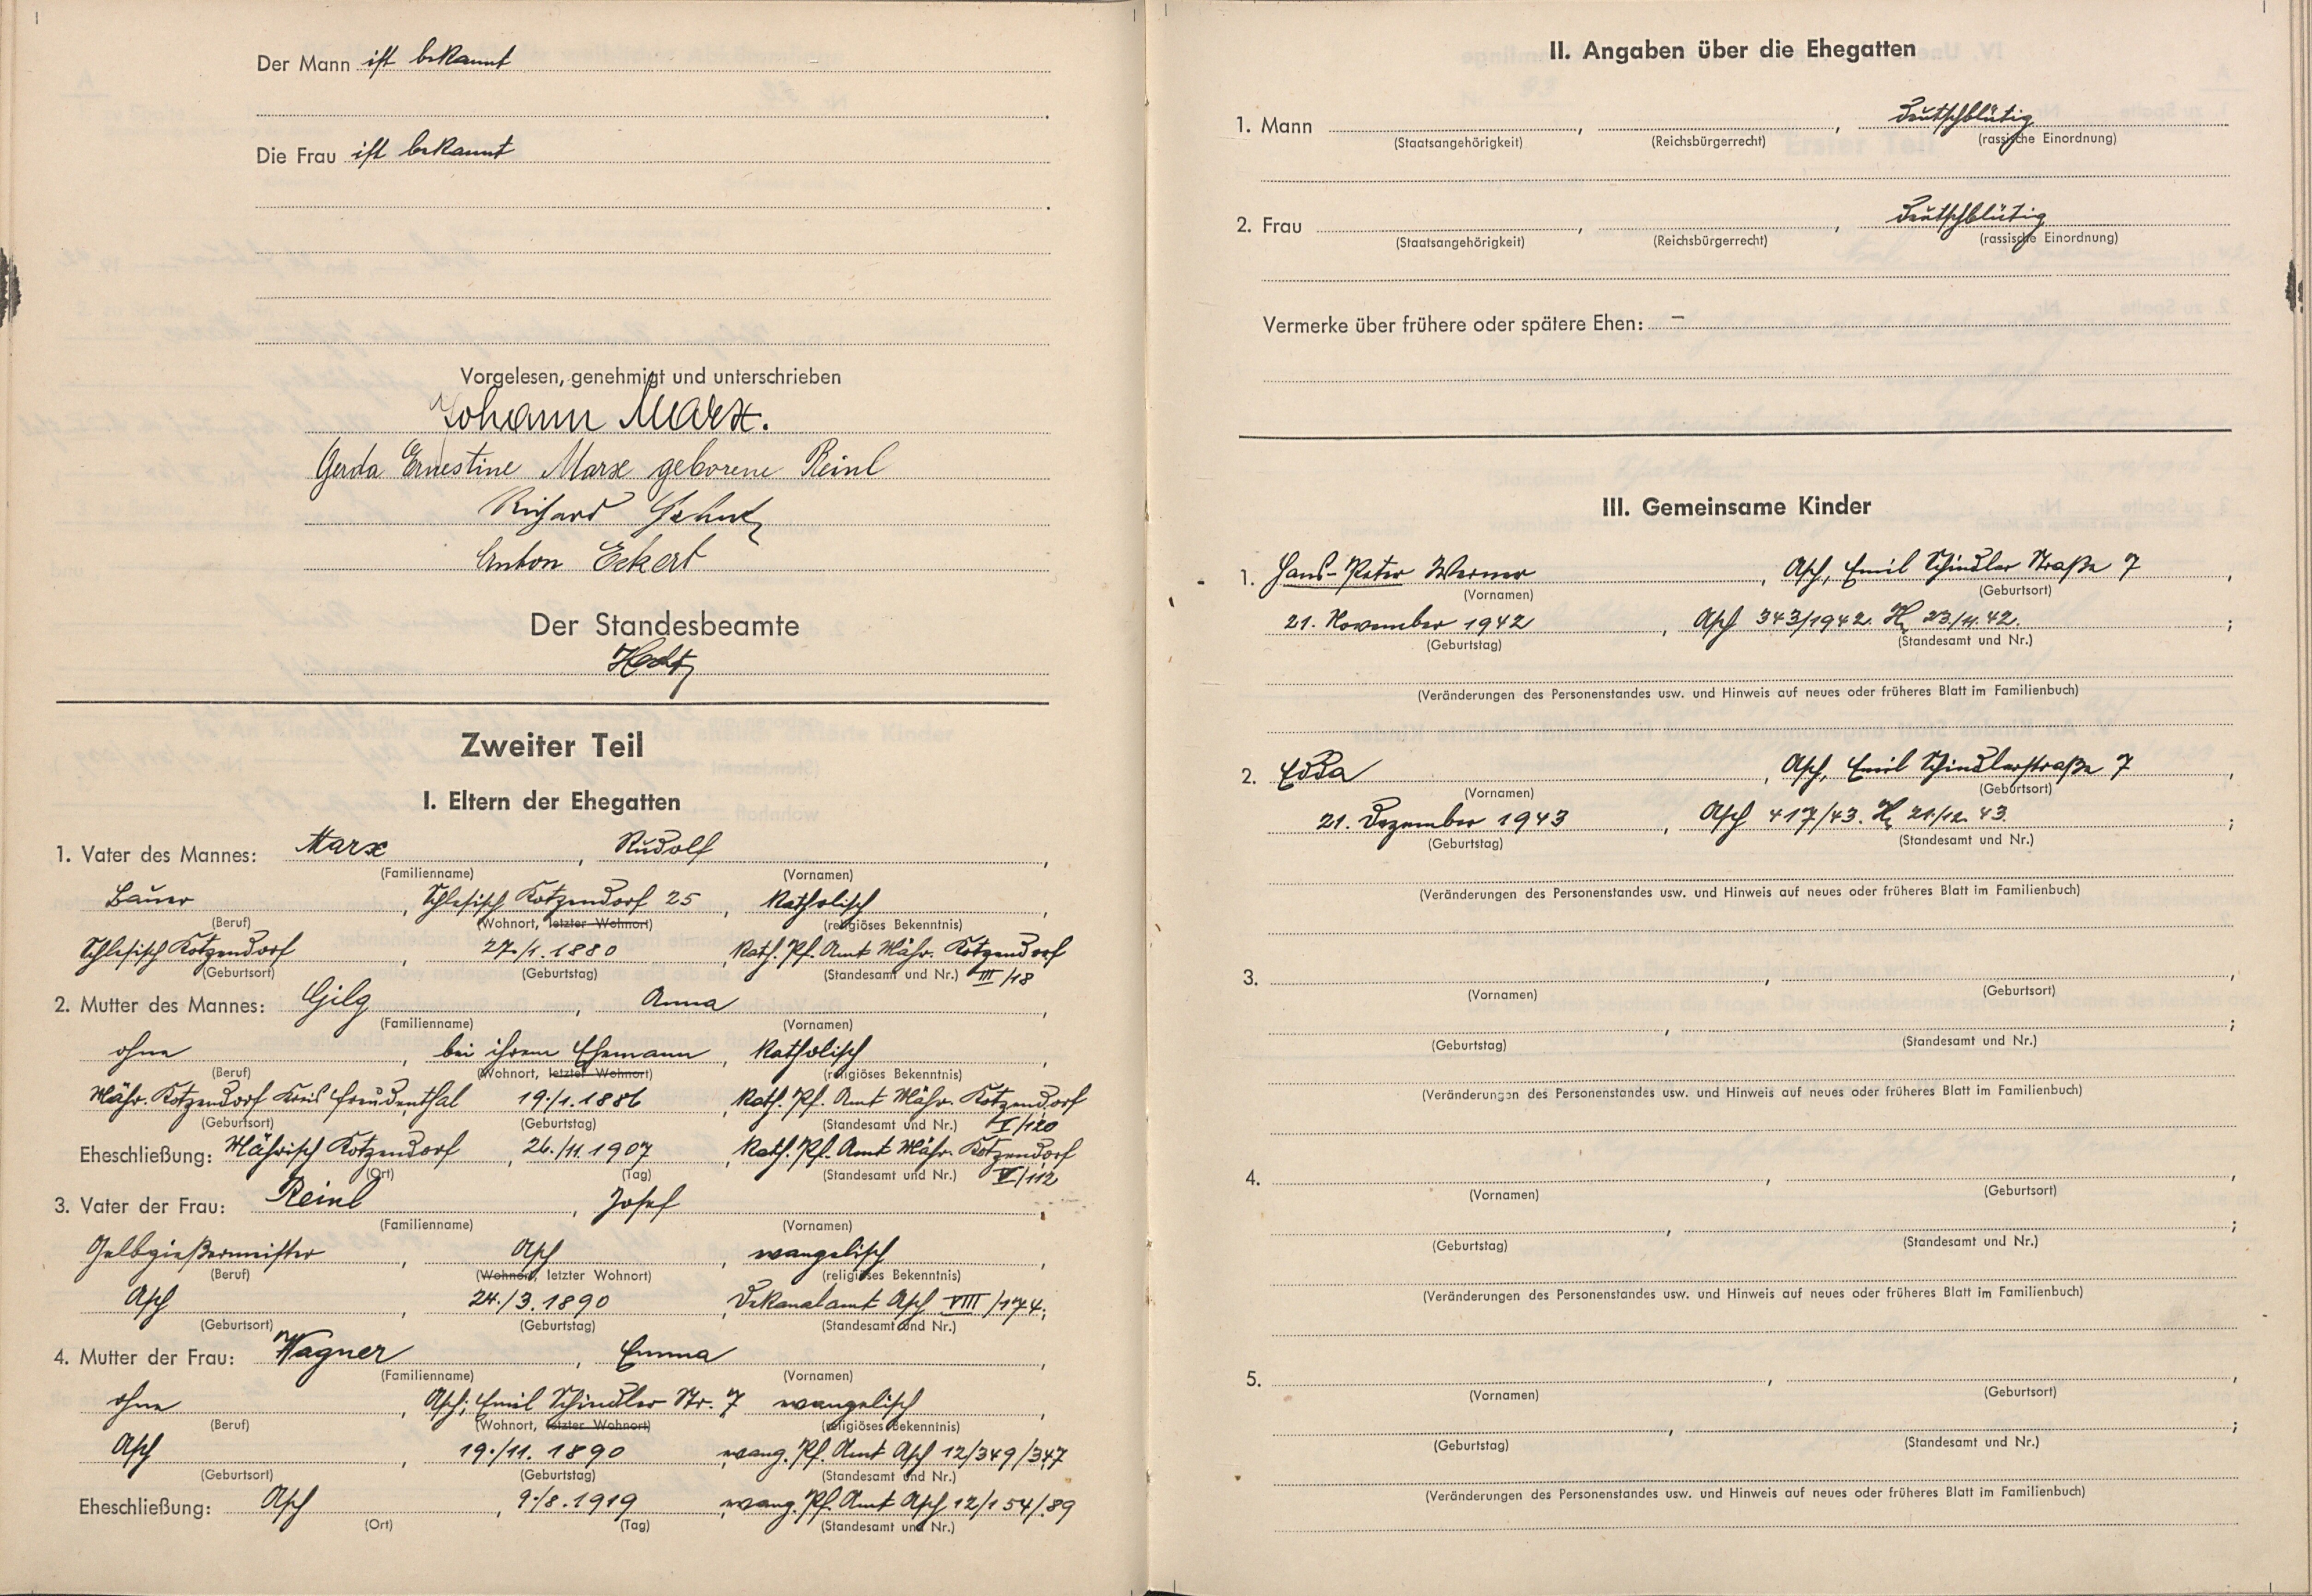 Der Mann ist bekannt
Die Frau ist bekannt
Vorgelesen, genehmigt und unterschrieben
Johann Marx.
Gerda Ernestine Marx geborene Reinl
Richard
Anton Eckert
Der Standesbeamte
Zweiter Teil
I. Eltern der Ehegatten
1. Vater des Mannes: Marx, Rudolf,
(Familienname) (Vornamen)
Bauer, Schlesisch Kotzendorf 25, katholisch,
(Beruf) (Wohnort, letzter Wohnort) (religiöses Bekenntnis)
Schlesisch Kotzendorf, 27./1. 1880, Kath. Pf. Amt Mähr. Kotzendorf
(Geburtsort) (Geburtstag) (Standesamt und Nr.) III/18
2. Mutter des Mannes: Gilg, Anna,
(Familienname) (Vornamen)
ohne, bei ihrem Ehemann, katholisch,
(Beruf) (Wohnort, letzter Wohnort) (religiöses Bekenntnis)
Mähr. Kotzendorf Kreis Freudenthal 19./1. 1886, Kath. Pf. Amt Mähr. Kotzendorf
(Geburtsort) (Geburtstag) (Standesamt und Nr.) /120
Eheschließung: Mährisch Kotzendorf, 26./11. 1907, Kath. Pf. Amt Mähr. Kotzendorf
(Ort) (Tag) (Standesamt und Nr.) V/112
3. Vater der Frau: Reinl, Josef,
(Familienname) (Vornamen)
Gelbgießermeister, Asch, evangelisch,
(Beruf) (Wohnort, letzter Wohnort) (religiöses Bekenntnis)
Asch, 24./3. 1890, Dekanalamt Asch VIII/174;
(Geburtsort) (Geburtstag) (Standesamt und Nr.)
4. Mutter der Frau: Wagner, Emma,
(Familienname) (Vornamen)
ohne, Asch, Emil Schindler Str. 7 evangelisch,
(Beruf) (Wohnort, letzter Wohnort) (religiöses Bekenntnis)
Asch, 19./11. 1890, evang. Pf. Amt Asch 12/349/347
(Geburtsort) (Geburtstag) (Standesamt und Nr.)
Eheschließung: Asch, 9./8. 1919, evang. Pf. Amt Asch 12/154/89
(Ort) (Tag) (Standesamt und Nr.)
II. Angaben über die Ehegatten
1. Mann , , deutschblütig
(Staatsangehörigkeit) (Reichsbürgerrecht) (rassische Einordnung)
2. Frau , , deutschblütig
(Staatsangehörigkeit) (Reichsbürgerrecht) (rassische Einordnung)
Vermerke über frühere oder spätere Ehen: –
III. Gemeinsame Kinder
1. Hans-Peter Werner, Asch, Emil Schindler Straße 7,
(Vornamen) (Geburtsort)
21. November 1942, Asch 343/1942. 23./11. 42.;
(Geburtstag) (Standesamt und Nr.)
(Veränderungen des Personenstandes usw. und Hinweis auf neues oder früheres Blatt im Familienbuch)
2. Edda, Asch, Emil Schindlerstraße 7,
(Vornamen) (Geburtsort)
21. Dezember 1943, Asch 417/43. 21/12. 43.;
(Geburtstag) (Standesamt und Nr.)
(Veränderungen des Personenstandes usw. und Hinweis auf neues oder früheres Blatt im Familienbuch)
3. , ,
(Vornamen) (Geburtsort)
, ;
(Geburtstag) (Standesamt und Nr.)
(Veränderungen des Personenstandes usw. und Hinweis auf neues oder früheres Blatt im Familienbuch)
4. , ,
(Vornamen) (Geburtsort)
, ;
(Geburtstag) (Standesamt und Nr.)
(Veränderungen des Personenstandes usw. und Hinweis auf neues oder früheres Blatt im Familienbuch)
5. , ,
(Vornamen) (Geburtsort)
, ;
(Geburtstag) (Standesamt und Nr.)
(Veränderungen des Personenstandes usw. und Hinweis auf neues oder früheres Blatt im Familienbuch)